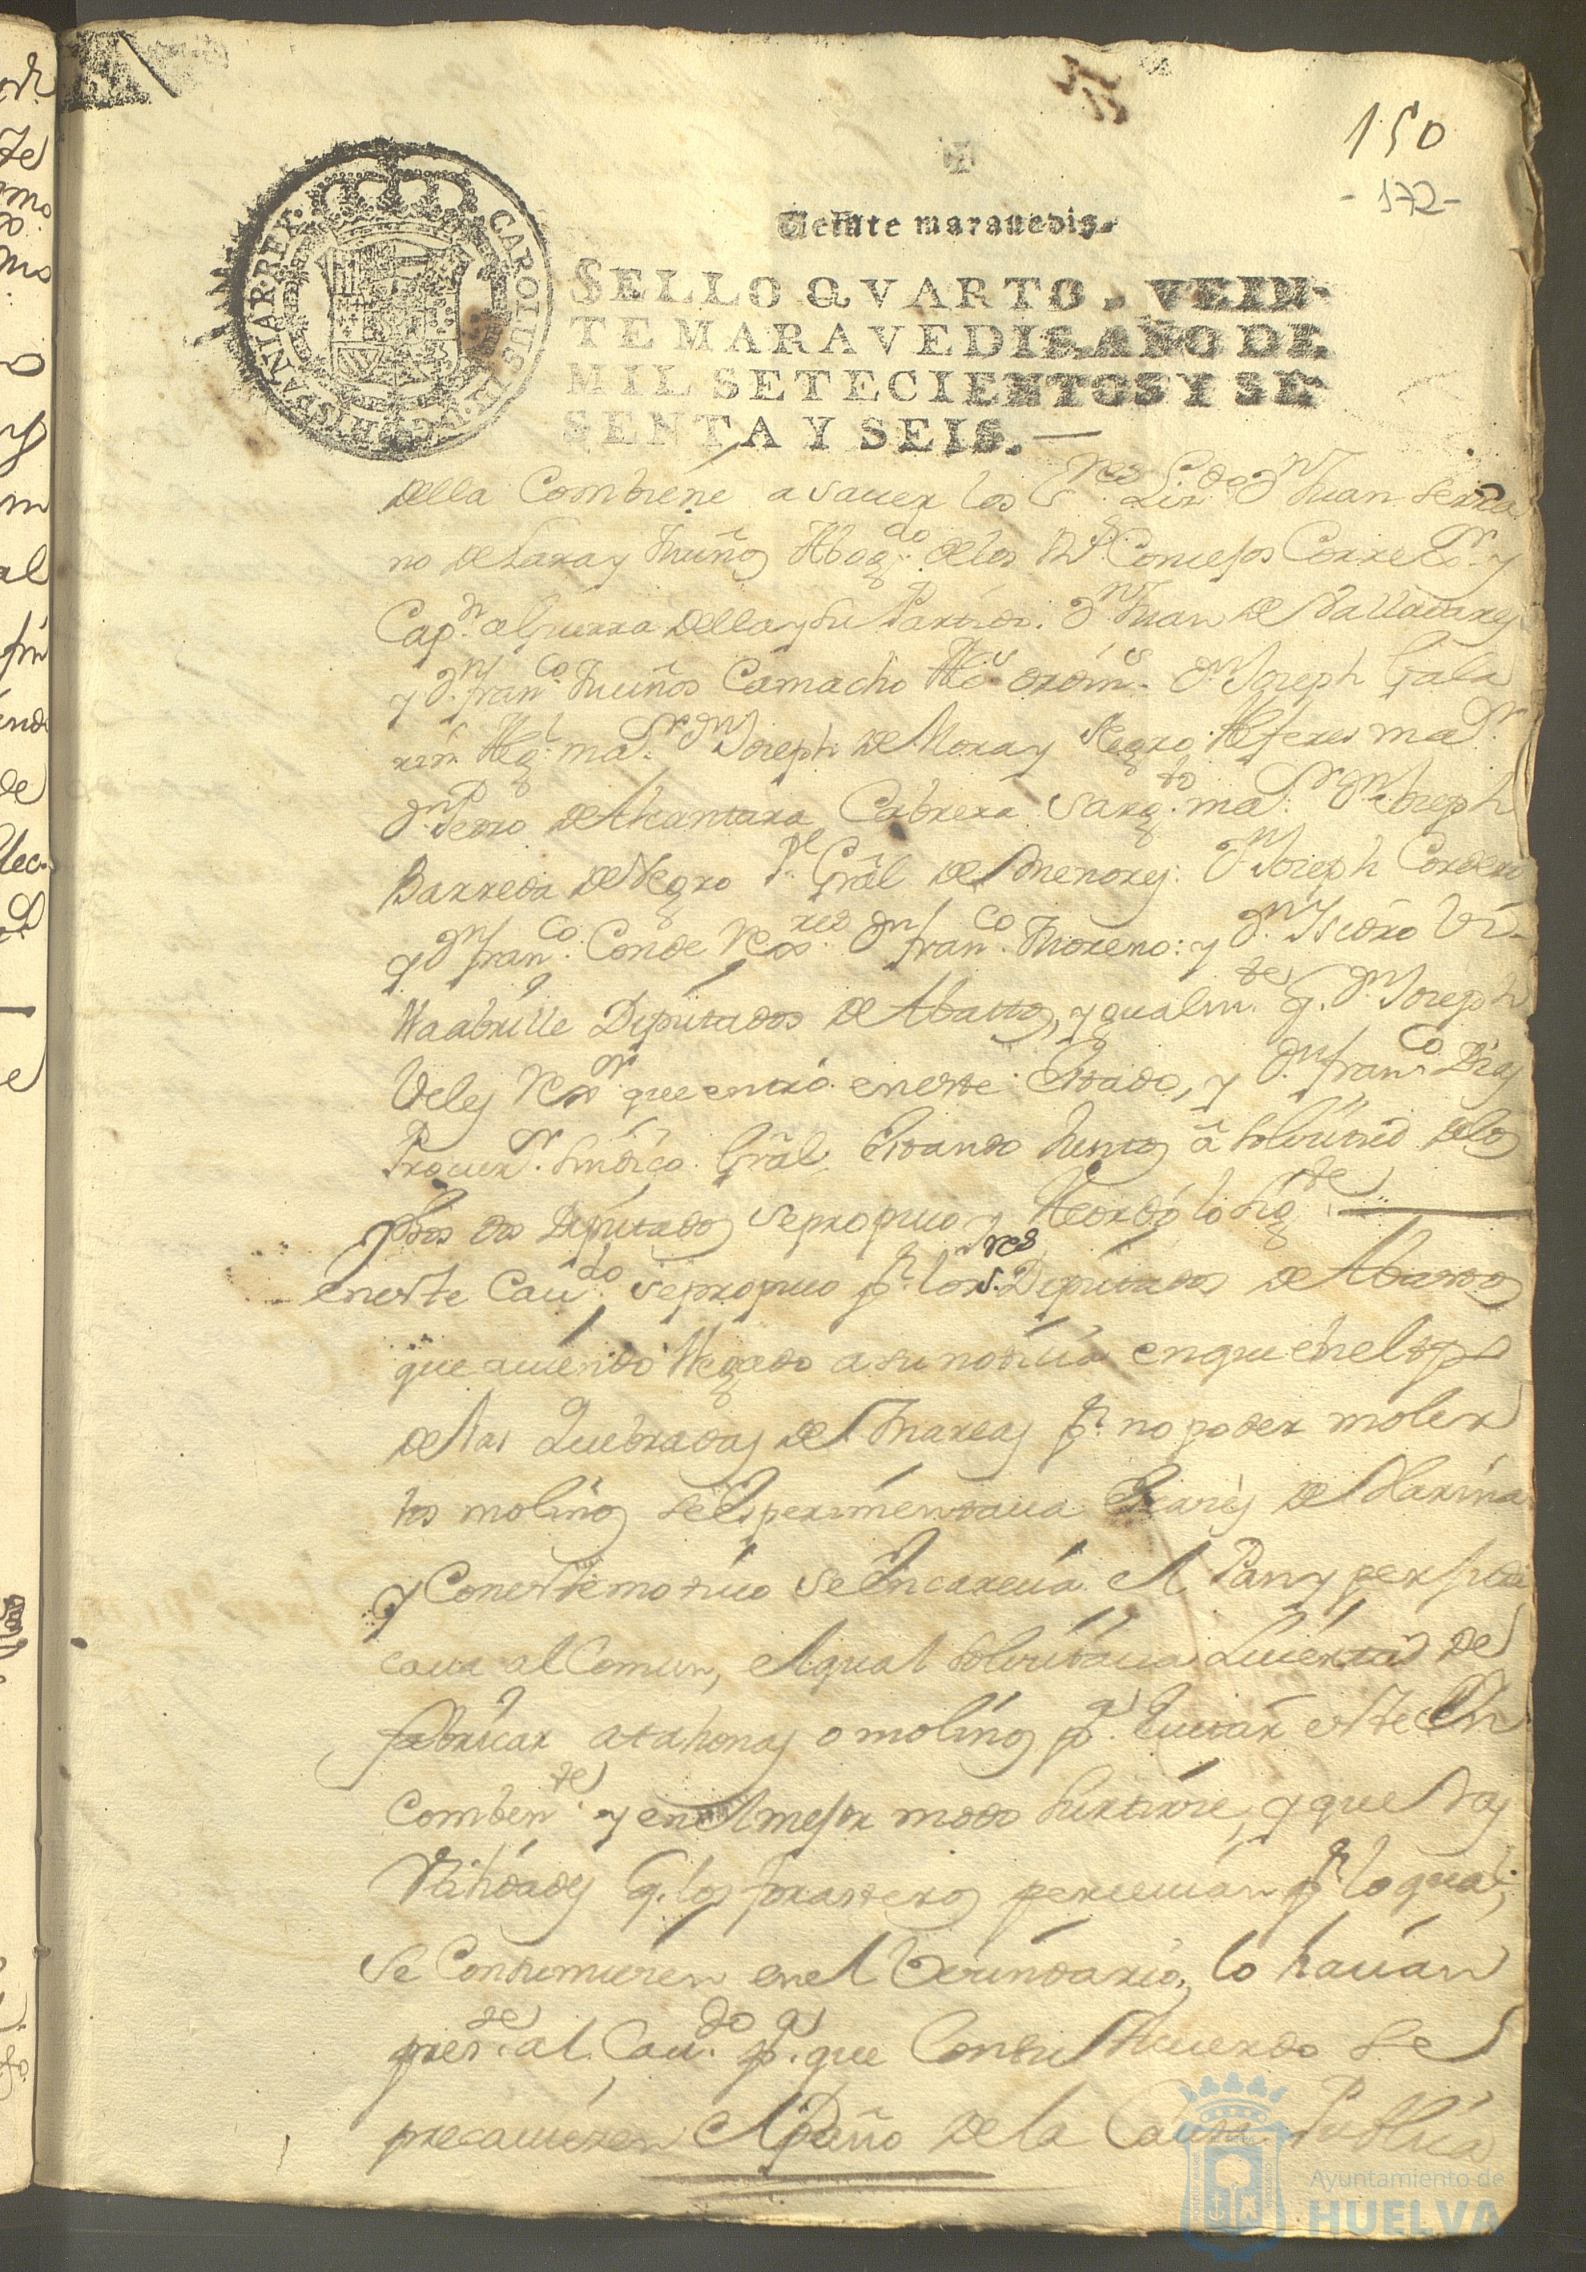 150
-172-
Veinte maravedis.
CAROLUS III D. G. HISPANIAR REX
SELLO QVARTO, VEIN-
TE MARAVEDIS, AÑO DE
MIL SETECIENTOS Y SE-
SENTA Y SEIS.
della Combiene a sauer los Sres Lizdo Dn Juan Serra
no de Lara y Muñoz Abogdo de los Rs Consejos Correxor y
Capn a Guerra della y su Partido. Dn Juan de Valladares
y Dn Franco Muños Camacho Alcs ordins Dn Joseph Gala
Algl mar Dn Joseph de Mora y Negro Alferes mar
Dn Pedro de Alcantara Cabrera Sargto mar Dn Joseph
Barreda de Negro Pe Gral de Menores. Dn Joseph Cordero
y Dn Franco Conde Rexres Dn Franco Moreno: y Dn Isidro
Deputados de Abastos, ygualmte q. Dn Joseph
Veles Rexor que entro en este Estado, y Dn Franco Dias
Procur Sindico Gral Estando Juntos â solicitud delos
dhos Diputados se propuso y Acordó lo Sigte
en este Caudo se propuso pr los Sres Diputados de Abastos
que auiendo llegado a su noticia en que en el tpo
de las Quebradas de Mareas pr no poder moler
los molinos se Esperimentaua Escaces de Harina
y Con este motiuo se Encarecia el Pan y perjudi
caua al Comun, el qual solicitaua Licencia de
fabricar atahonas o molinos pa Euitar este in
combente y en el mejor modo surtirse, y que las
Vtilidades q. los forasteros perciuian pr lo qual,
se Consumiesen en el Vecindario, lo hacian
preste al Caudo pa que Con su Acuerdo se
precauiesen el Daño de la Causa Publica
Ayuntamiento de
HUELVA